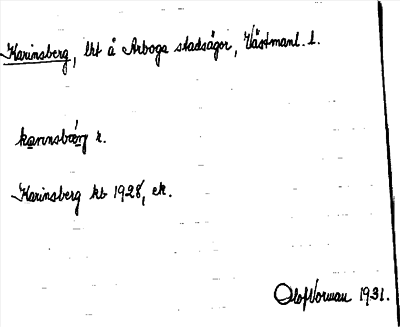 Karinsberg, lht å Arboga stadsägor, Västmanl. l.
karinsbærj r.
Karinsberg kb 1928, ek.
Olof Vorman 1931.